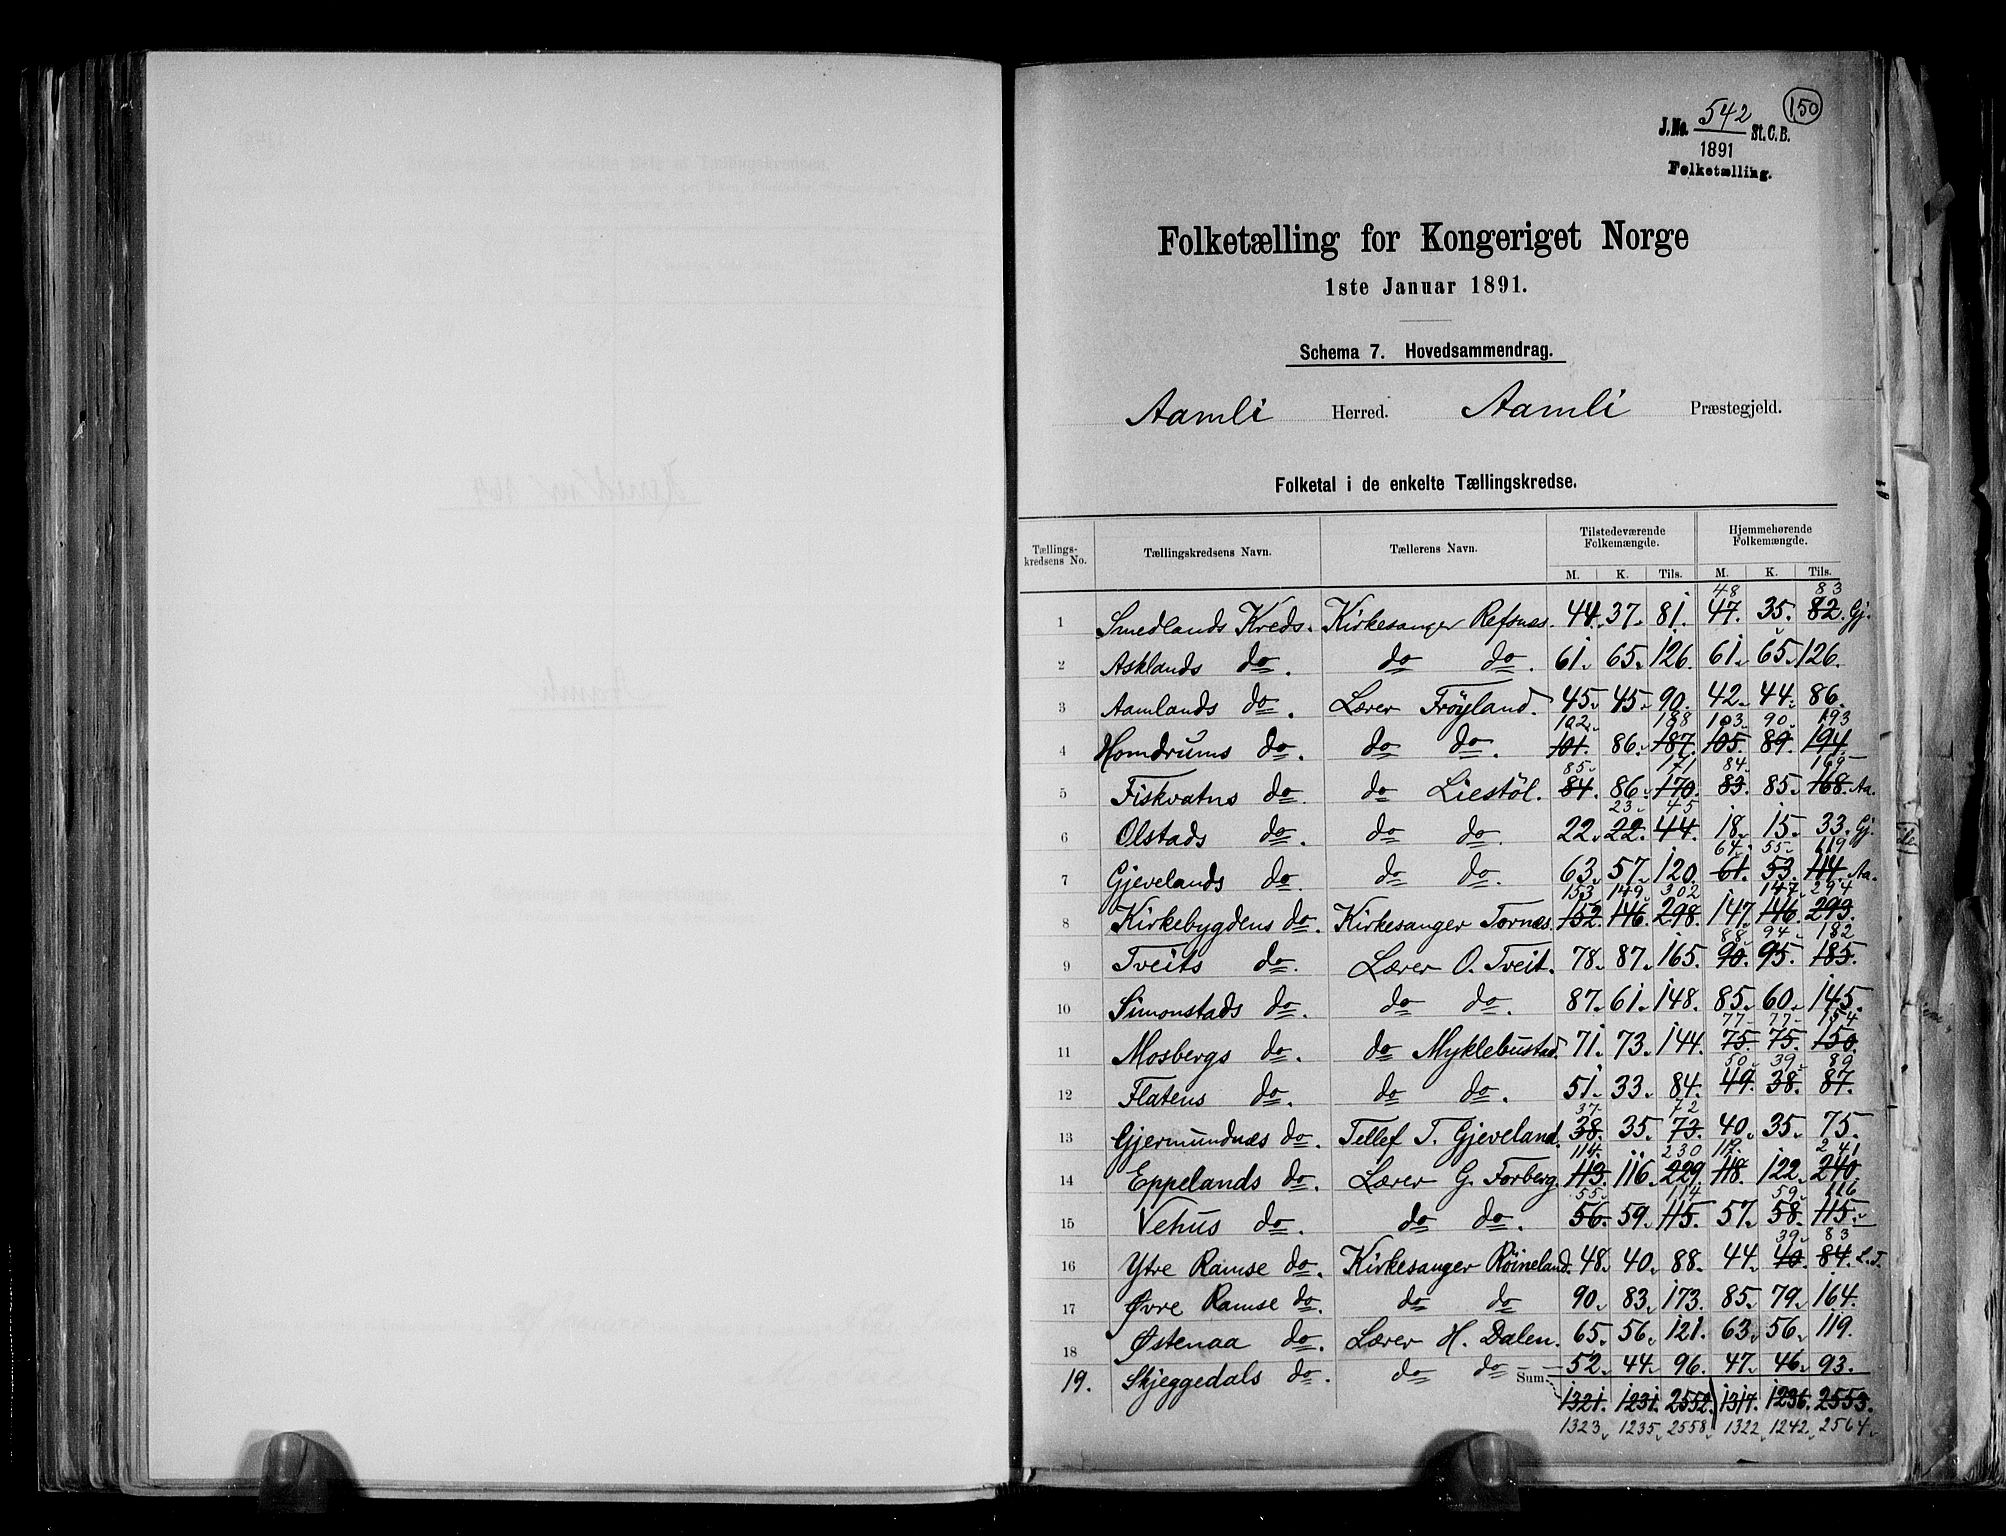 150
J.No. 542 St.C.B.
1891
Folketælling.
Folketælling for Kongeriget Norge
1ste Januar 1891.
Schema 7. Hovedsammendrag.
Aamli Herred. Aamli Præstegjeld.
Folketal i de enkelte Tællingskredse.
Tællings-kredsens No. Tællingskredsens Navn. Tællerens Navn. Tilstedeværende Folkemængde. Hjemmehørende Folkemængde.
M. K. Tils. M. K. Tils.
48 83
1 Smedlands Kreds. Kirkesanger Refsnes. 44. 37. 81. 47. 35. 82. Gj.
2 Asklands do. do do. 61. 65. 126. 61. 65. 126.
3 Aamlands do. Lærer Frøyland. 45. 45. 90. 42. 44. 86.
102. 188 103. 90. 193
4 Homdrums do. do do. 101. 86. 187. 105. 89. 194.
85. 171 84. 169
5 Fiskvatns do. do Liestöl. 84. 86. 170. 83. 85. 168. Aa.
23. 45
6 Olstads do. do do. 22. 22. 44. 18. 15. 33. Gj.
64. 55. 119
7 Gjevelands do. do do. 63. 57. 120. 61. 53. 114. Aa.
153 149. 302 147. 294
8 Kirkebygdens do. Kirkesanger Tornæs. 152. 146. 298. 147. 146. 293.
88. 94. 182
9 Tveits do. Lærer O. Tveit. 78. 87. 165. 90. 95. 185.
10 Simonstads do. do do. 87. 61. 148. 85. 60. 145.
77. 77. 154
11 Mosbergs do. do Myklebustad. 71. 73. 144. 75. 75. 150.
50. 39. 89
12 Flatens do. do do. 51. 33. 84. 49. 38. 87.
37. 72
13 Gjermundnæs do. Tellef T. Gjeveland. 38. 35. 73. 40. 35. 75.
114. 230 119. 241
14 Eppelands do. Lærer G. Forberg. 113. 116. 229. 118. 122. 240
55. 114 59. 116
15 Vehus do. do do. 56. 59. 115. 57. 58. 115.
39. 83
16 Ytre Ramse do. Kirkesanger Røineland. 48. 40. 88. 44. 40. 84. L.T.
17 Øvre Ramse do. do do 90. 83. 173. 85. 79. 164.
18 Østenaa do. Lærer H. Dalen. 65. 56. 121. 63. 56. 119.
19. Skjeggedals do. do do 52. 44. 96. 47. 46. 93.
Sum 1321. 1231. 2552. 1317. 1236. 2553.
1323. 1235. 2558. 1322. 1242. 2564.